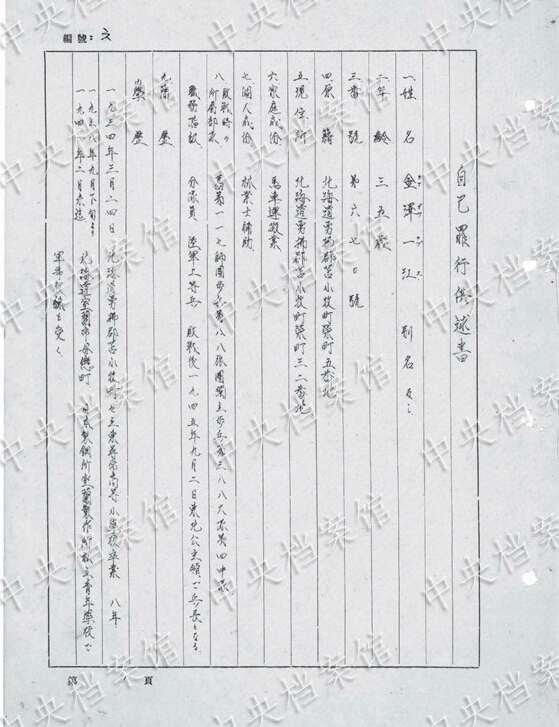 編號：
自己罪行供述書
一、姓名 金澤一江 別名 なし
二、年齡 三五歳
三、番號 第六七〇號
四、原籍 北海道勇拂郡苫小牧町榮町五番地
五、現住所 北海道勇拂郡苫小牧町榮町三二番地
六、家庭成份 馬車運搬業
七、個人成份 林業士補助
八、敗戰時の所屬部隊 第一一七師團步兵第八八旅團獨立步兵第三八八大隊第四中隊
職務階級 分隊員 陸軍上等兵 敗戰後一九四五年九月二日東北公主嶺で兵長となる
九、簡歷
學歷
一九三四年三月二四日 北海道勇拂郡苫小牧町 高等小學校卒業 八年
一九三八年九月下旬より
一九四一年二月末迄 北海道室蘭市母戀町 日本製鋼所室蘭製作所私立青年學校で
軍事教練を受く
第 頁
中央档案馆